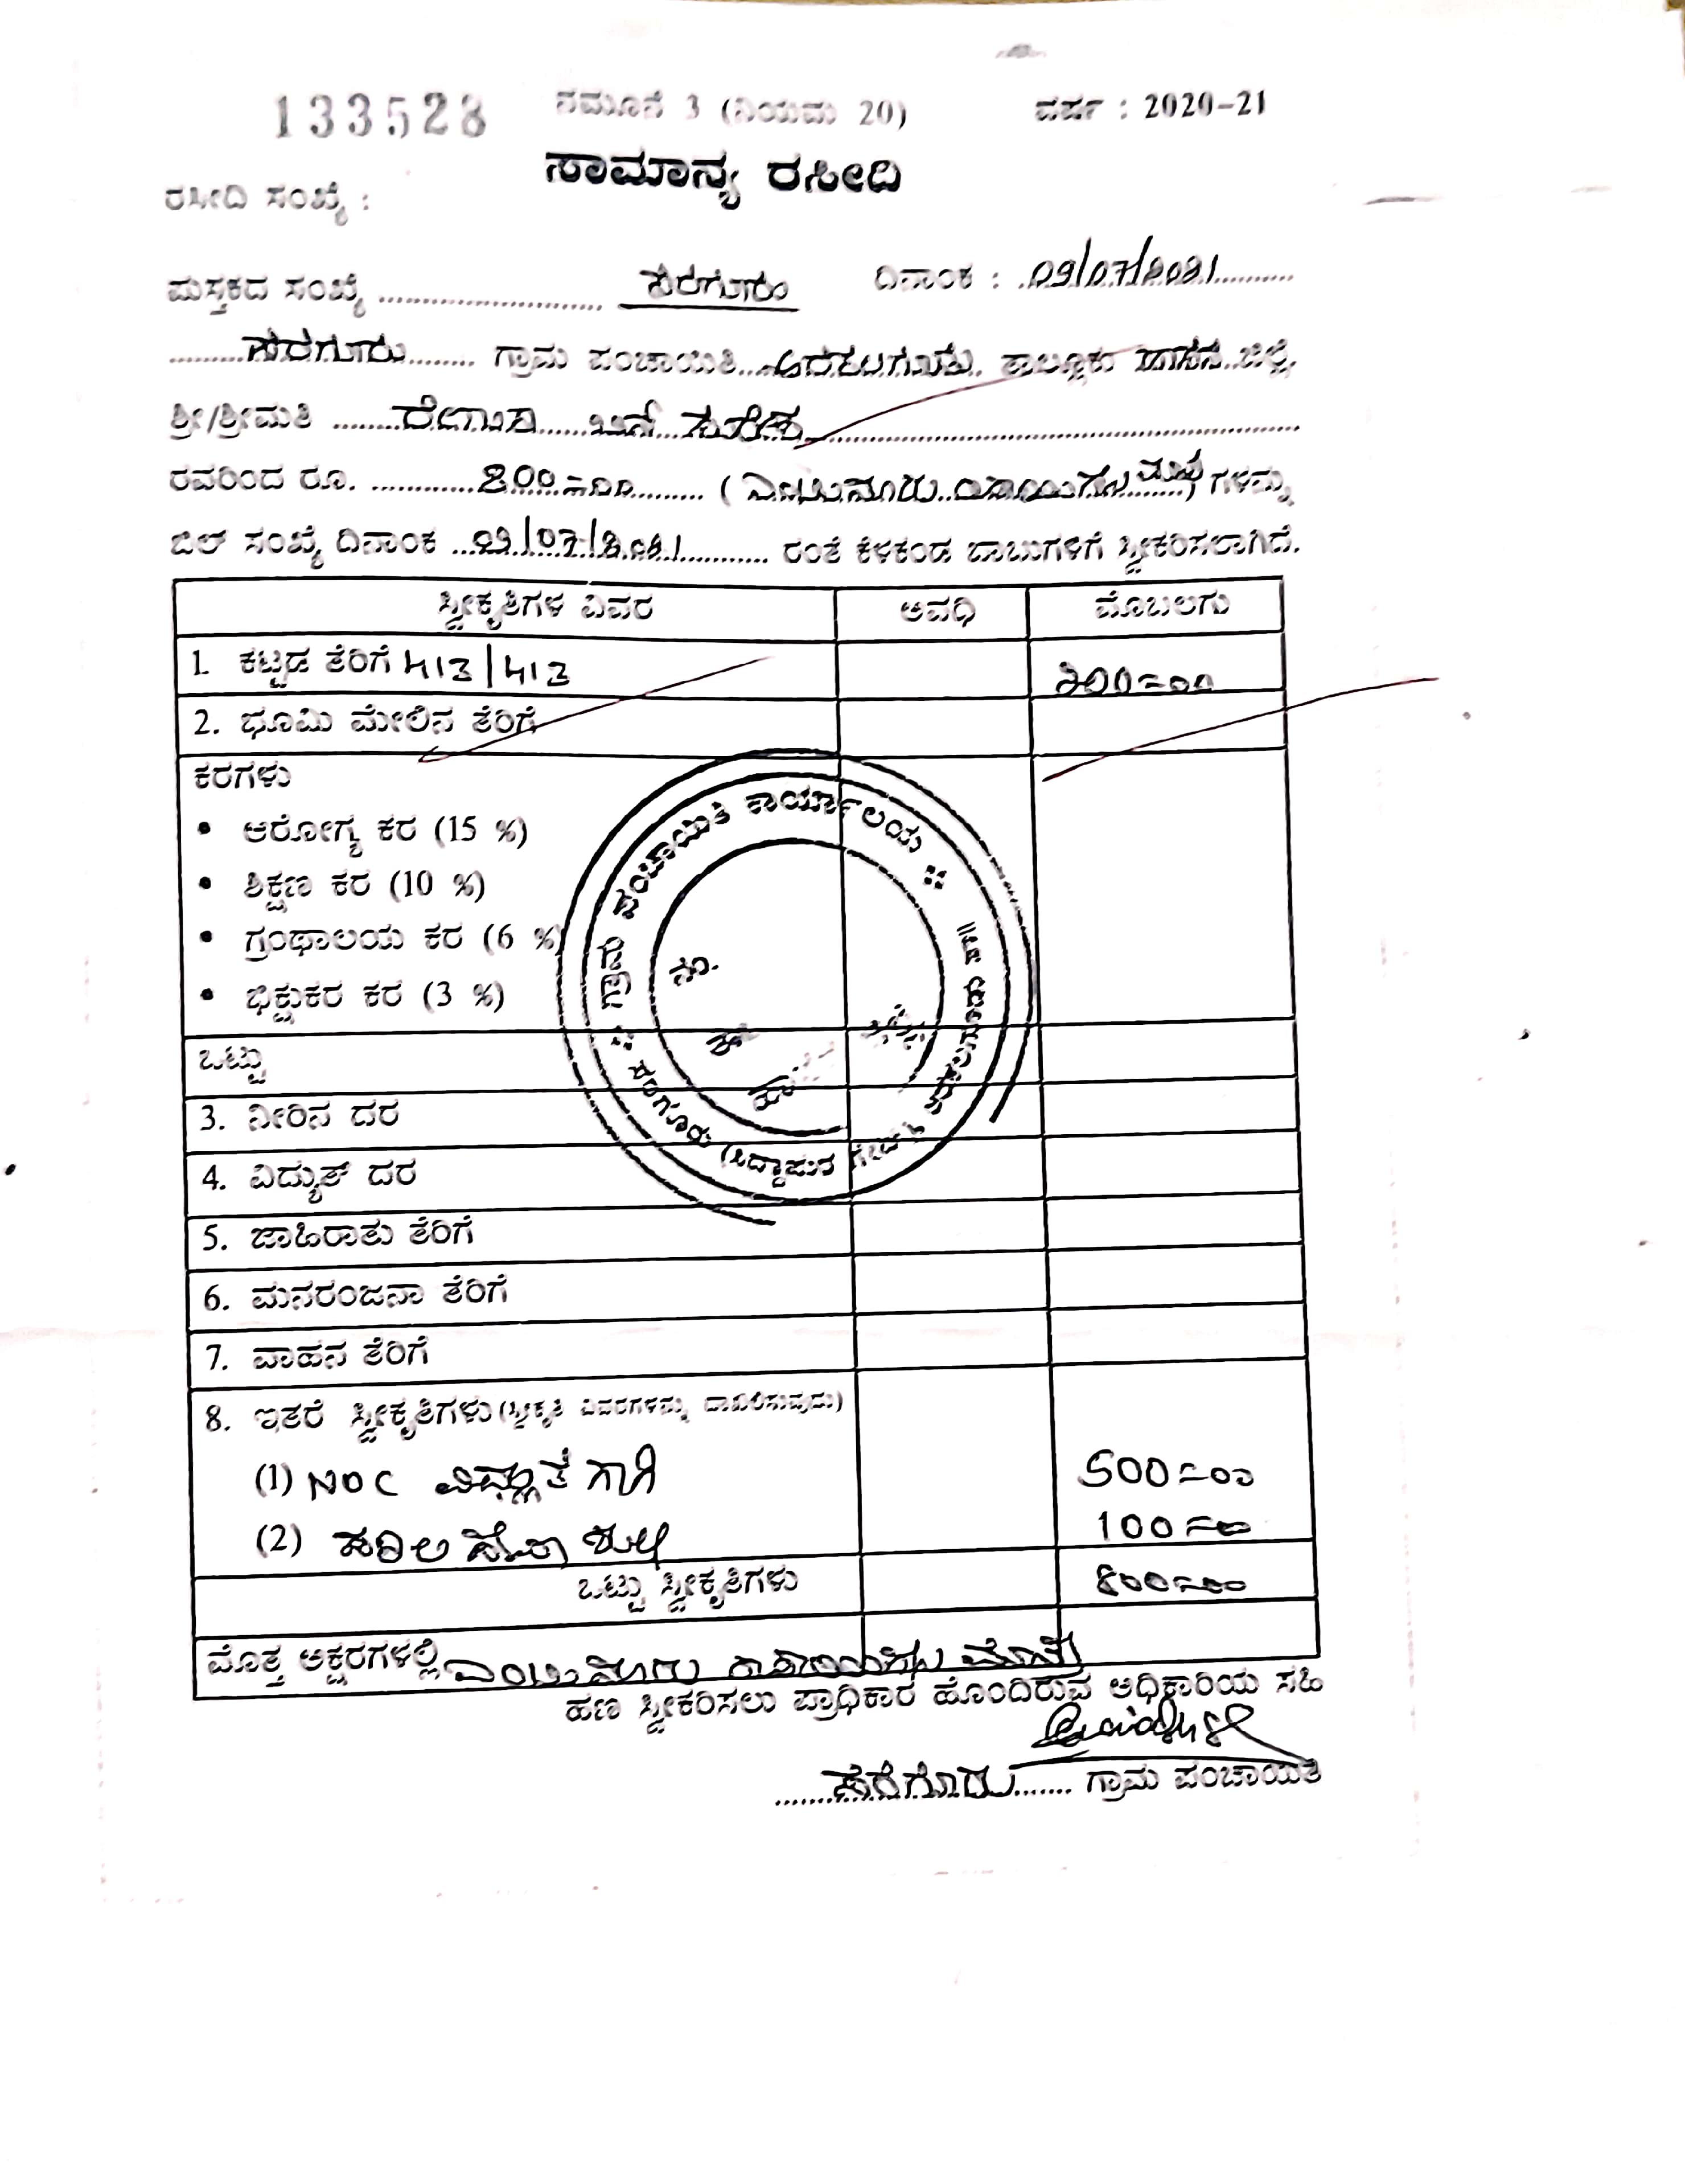 133528 ನಮೂನೆ 3 (ನಿಯಮ 20) ವರ್ಷ : 2020-21
ಸಾಮಾನ್ಯ ರಸೀದಿ
ರಸೀದಿ ಸಂಖ್ಯೆ :
ಪುಸ್ತಕದ ಸಂಖ್ಯೆ ದಿನಾಂಕ : 09/07/2021
ಗ್ರಾಮ ಪಂಚಾಯಿತಿ ಅರಕಲಗೂಡು ತಾಲ್ಲೂಕು ಹಾಸನ ಜಿಲ್ಲೆ.
ಶ್ರೀ/ಶ್ರೀಮತಿ ಬಿನ್
ರವರಿಂದ ರೂ. 800=00 ( ಎಂಟುನೂರು ರೂಪಾಯಿಗಳು ಮಾತ್ರ) ಗಳನ್ನು
ಬಿಲ್ ಸಂಖ್ಯೆ ದಿನಾಂಕ 09/07/2021 ರಂತೆ ಕೆಳಕಂಡ ಬಾಬುಗಳಿಗೆ ಸ್ವೀಕರಿಸಲಾಗಿದೆ.
ಸ್ವೀಕೃತಿಗಳ ವಿವರ ಅವಧಿ ಮೊಬಲಗು
1. ಕಟ್ಟಡ ತೆರಿಗೆ 413/413 200=00
2. ಭೂಮಿ ಮೇಲಿನ ತೆರಿಗೆ
ಕರಗಳು
• ಆರೋಗ್ಯ ಕರ (15 %)
• ಶಿಕ್ಷಣ ಕರ (10 %)
• ಗ್ರಂಥಾಲಯ ಕರ (6 %)
• ಭಿಕ್ಷುಕರ ಕರ (3 %)
ಪಂಚಾಯಿತಿ ಕಾರ್ಯಾಲಯ
ಒಟ್ಟು
3. ನೀರಿನ ದರ
4. ವಿದ್ಯುತ್ ದರ
5. ಜಾಹಿರಾತು ತೆರಿಗೆ
6. ಮನರಂಜನಾ ತೆರಿಗೆ
7. ವಾಹನ ತೆರಿಗೆ
8. ಇತರೆ ಸ್ವೀಕೃತಿಗಳು (ಸ್ವೀಕೃತಿ ವಿವರಗಳನ್ನು ದಾಖಲಿಸುವುದು)
(1) NOC 500=00
(2) 100=00
ಒಟ್ಟು ಸ್ವೀಕೃತಿಗಳು 800=00
ಮೊತ್ತ ಅಕ್ಷರಗಳಲ್ಲಿ ಎಂಟುನೂರು ರೂಪಾಯಿಗಳು ಮಾತ್ರ
ಹಣ ಸ್ವೀಕರಿಸಲು ಪ್ರಾಧಿಕಾರ ಹೊಂದಿರುವ ಅಧಿಕಾರಿಯ ಸಹಿ
ಗ್ರಾಮ ಪಂಚಾಯಿತಿ